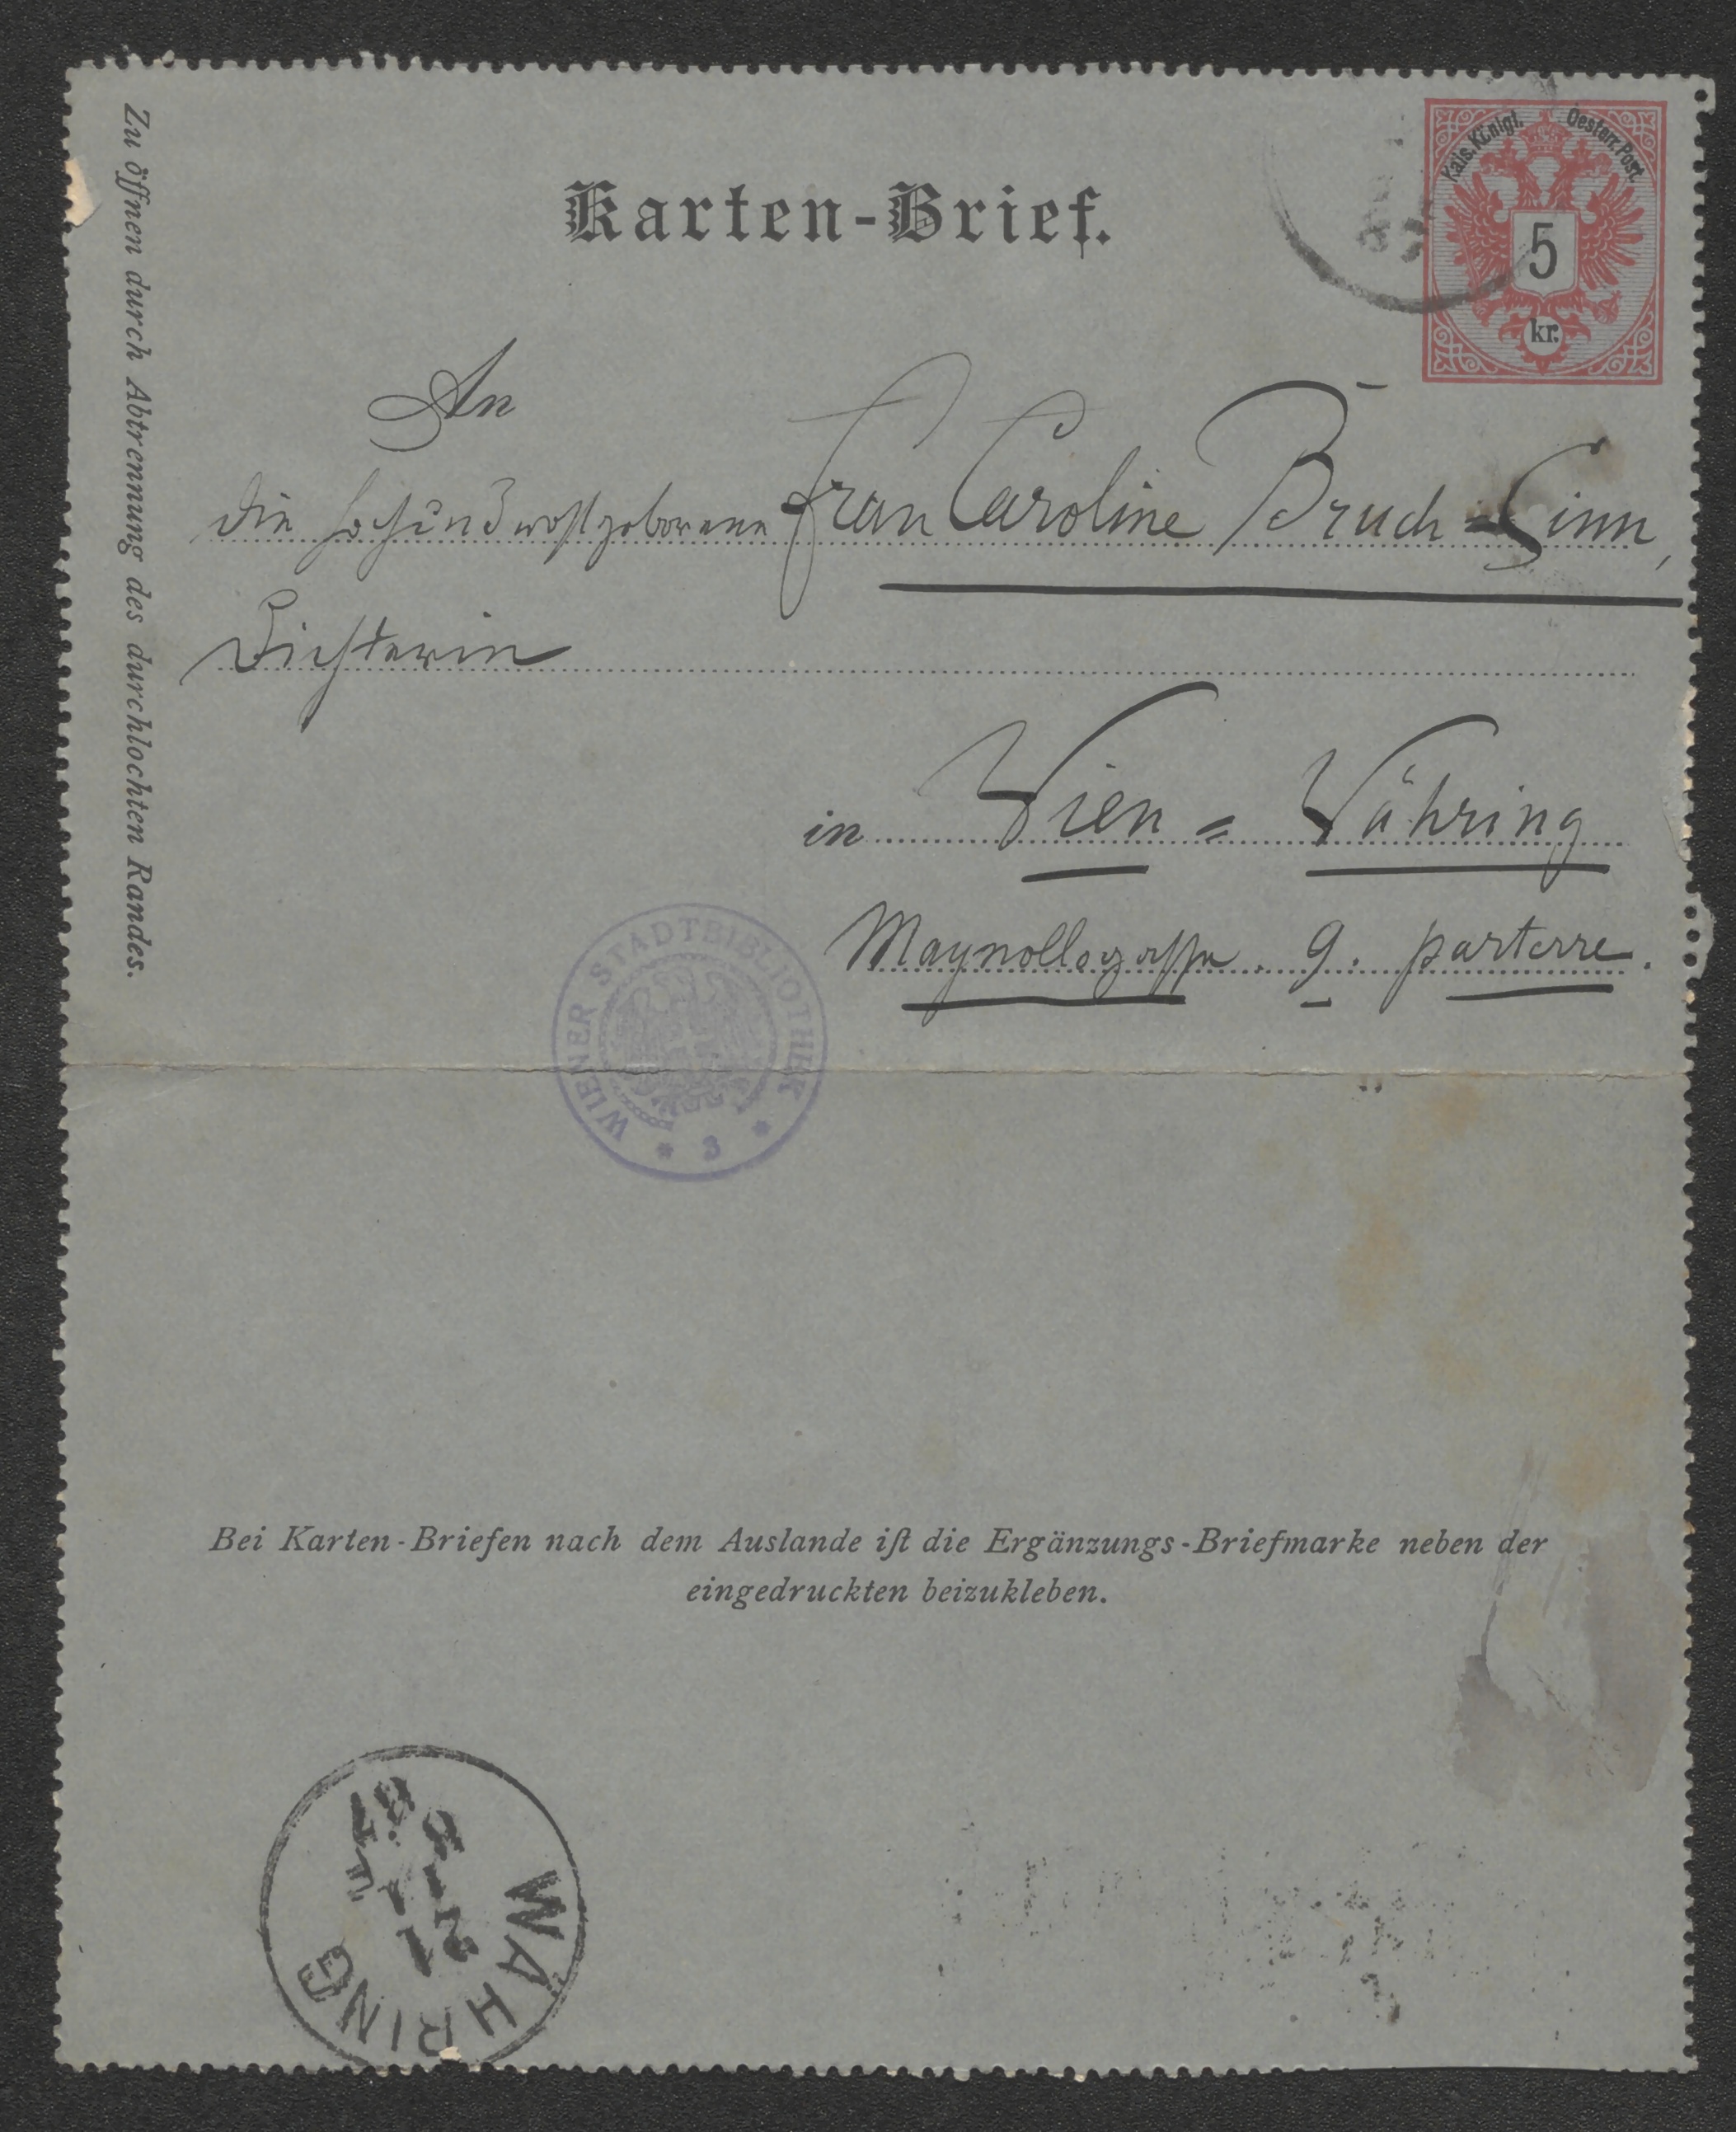 Zu öffnen durch Abtrennung des durchlochten Randes.
Karten-Brief.
Kais. Königl. Oesterr. Post.
5
kr.
An
die hoch und wohlgeborene Frau Caroline Bruch-Sinn,
Dichterin
in Wien = Währing
Maynollogasse. 9. parterre.
WIENER STADTBIBLIOTHEK
* 3 *
Bei Karten-Briefen nach dem Auslande iſt die Ergänzungs-Briefmarke neben der
eingedruckten beizukleben.
WÄHRING
87